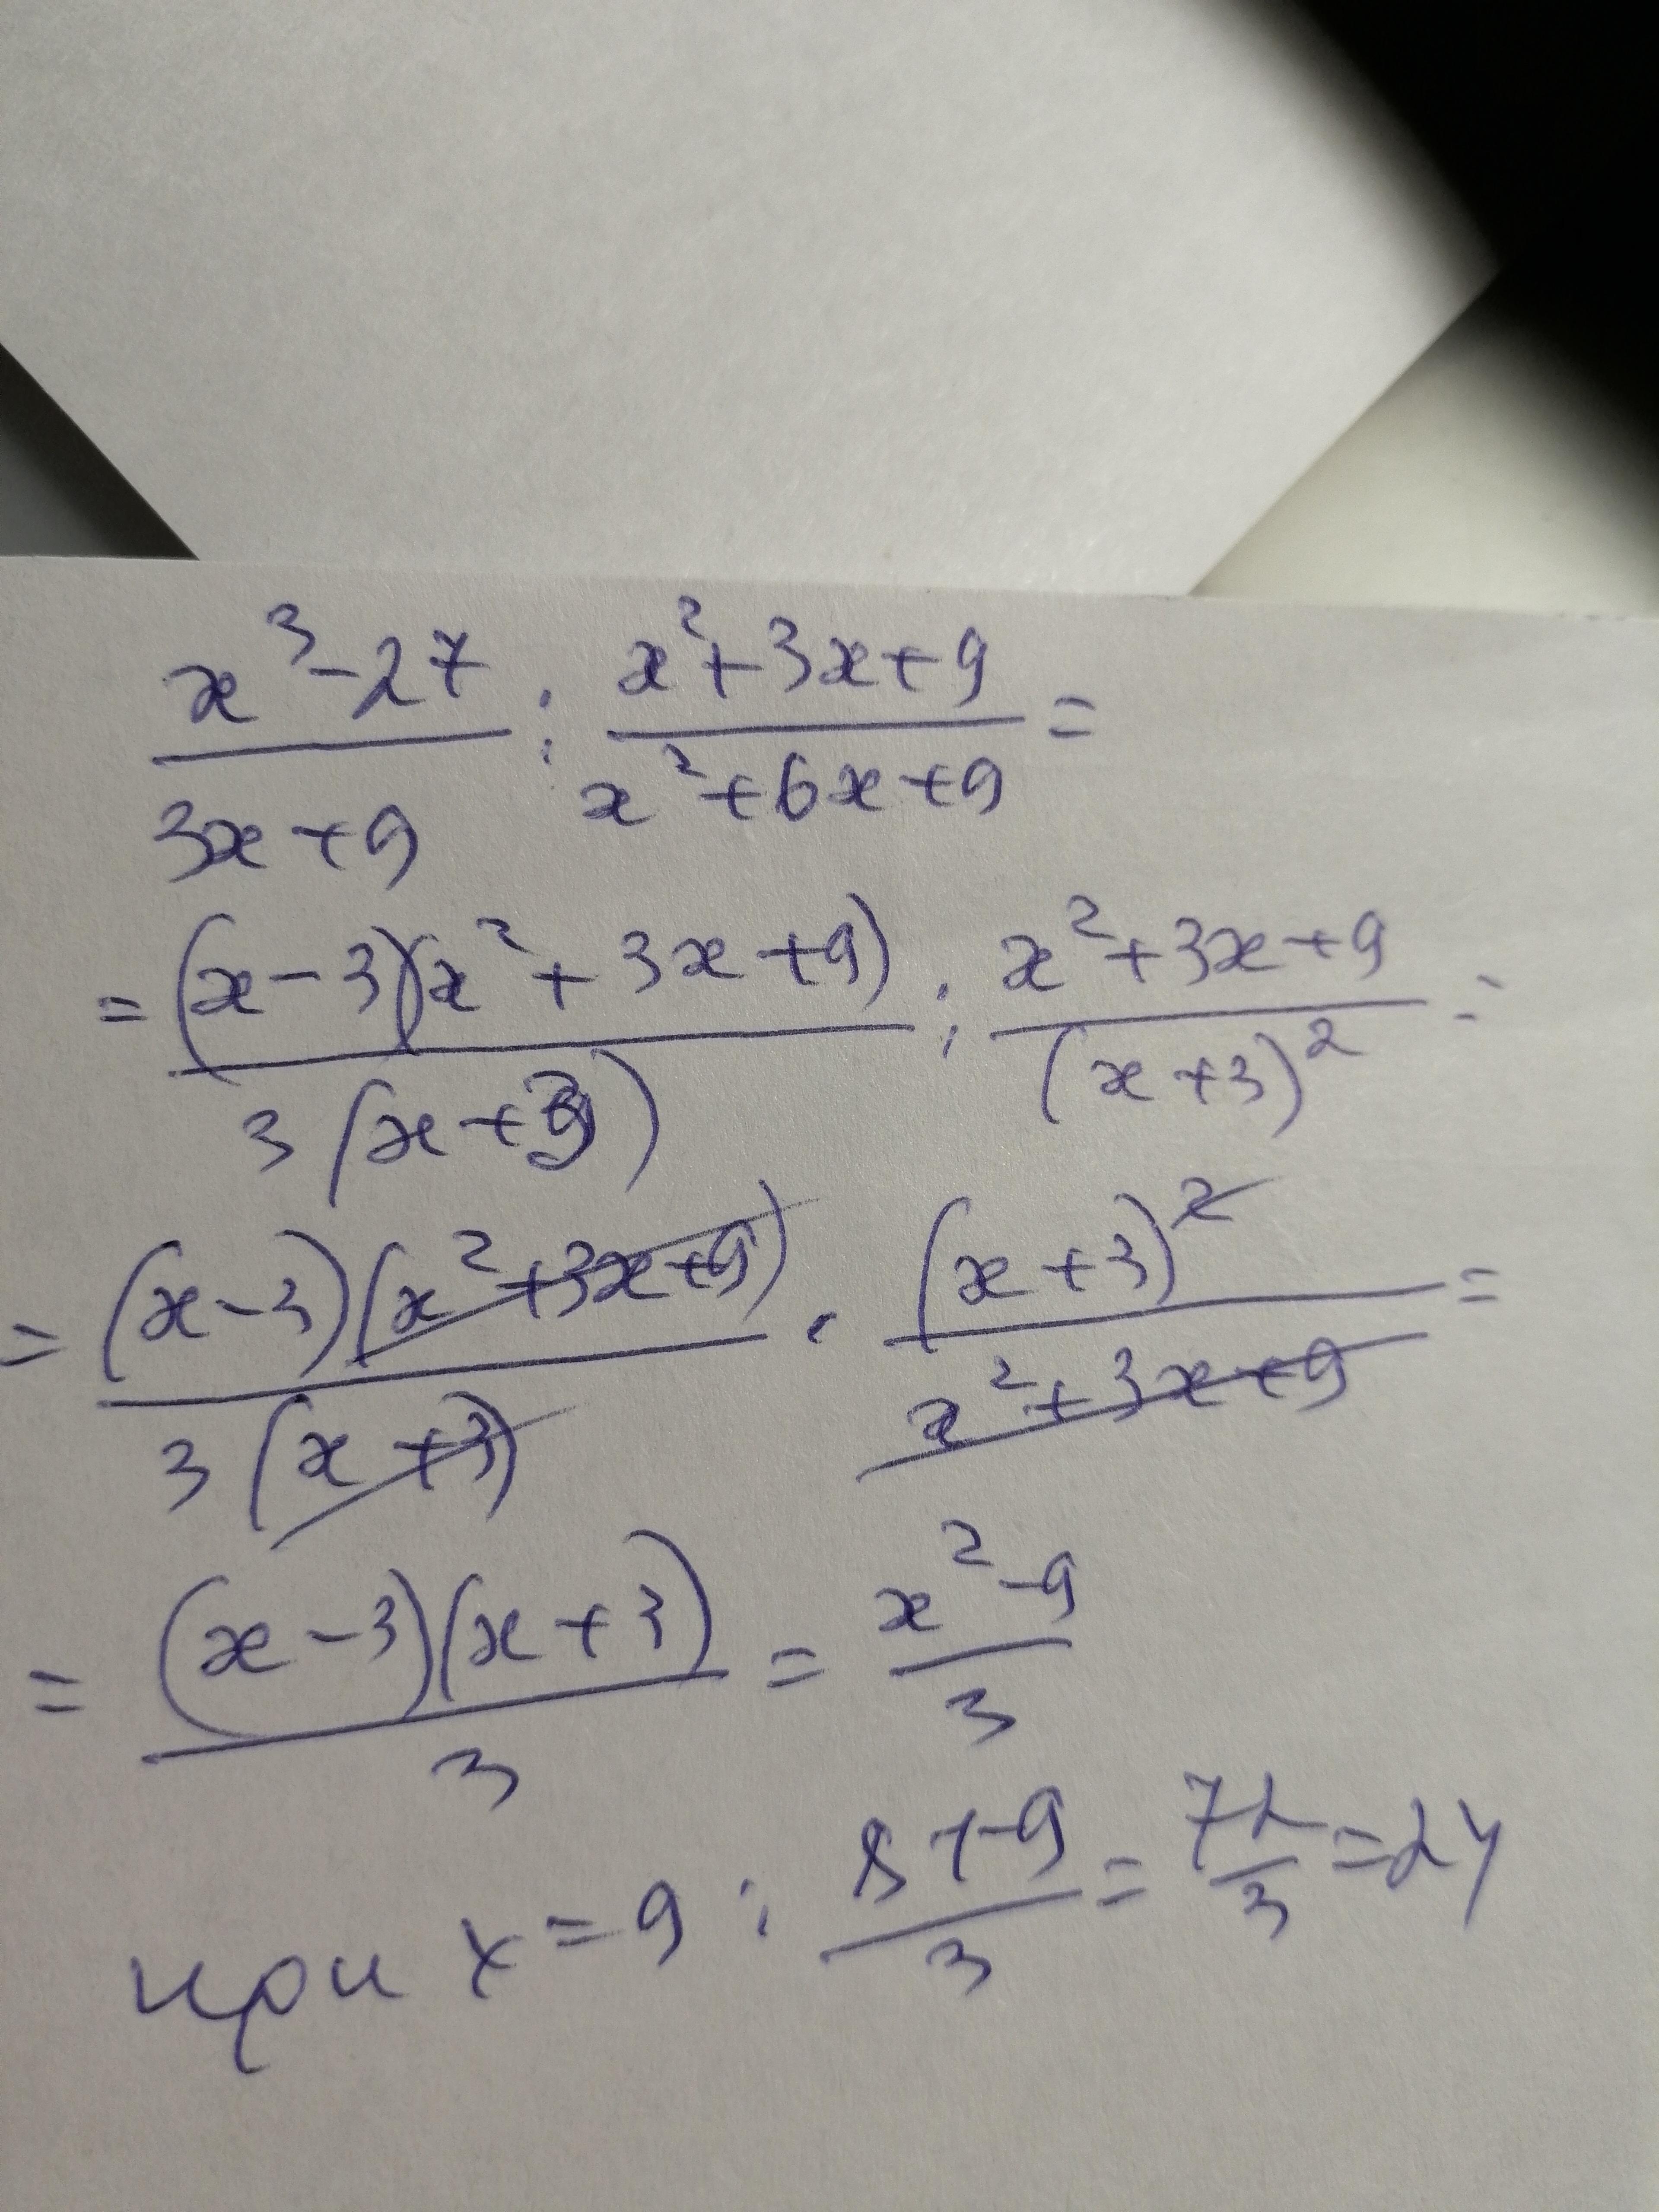 x³-27/3x+9 : x²+3x+9/x²+6x+9 =
= (x-3)(x²+3x+9)/3(x+3) : x²+3x+9/(x+3)² =
= (x-3)(x²+3x+9)/3(x+3) · (x+3)²/x²+3x+9 =
= (x-3)(x+3)/3 = x²-9/3
при x=9 : 81-9/3 = 72/3 = 24